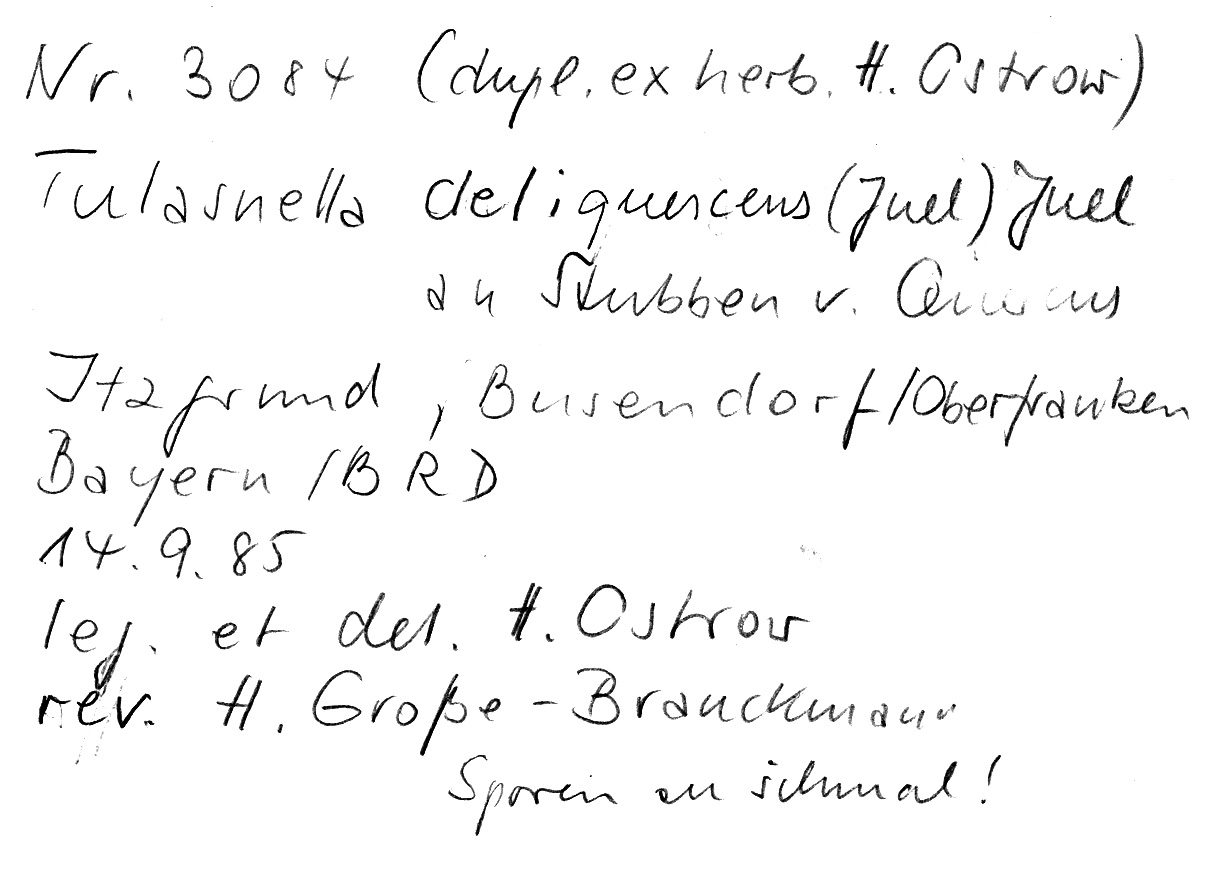 Nr. 3084 (dupl. ex herb. H. Ostrow)
Tulasnella deliquescens (Juel) Juel
an Stubben v. Quercus
Itzgrund, Busendorf/Oberfranken
Bayern /BRD
14.9.85
leg. et det. H. Ostrow
rev. H. Große-Brauckmann
Sporen zu schmal!